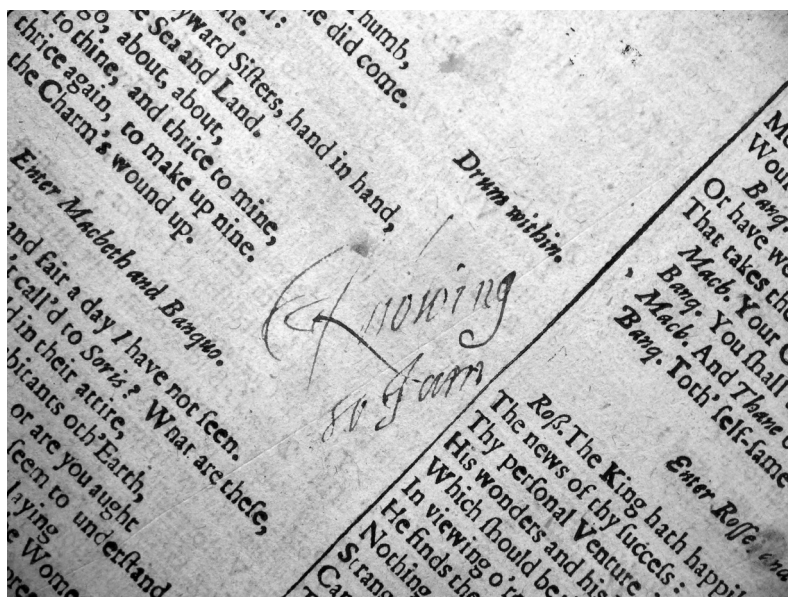 humb,
did come.
Drum within.
yward Siſters, hand in hand,
Sea and Land.
go, about, about,
to thine, and thrice to mine,
thrice again, to make up nine.
the Charm's wound up.
Enter Macbeth and Banquo.
and fair a day I have not ſeen.
call'd to Soris? What are theſe,
in their attire,
bitants oth'Earth,
or are you aught
ſeem to underſtand
laying
Wome
Knowing
so I am
Woul
Banq.
Or have we
That takes the
Macb. Your C
Banq. You ſhall
Macb. And Thane
Banq. Toth' ſelf-ſame
Enter Roſſe and
Roß. The King hath happil
The news of thy ſucceſs:
Thy perſonal Venture
His wonders and his
Which ſhould be
In viewing o're
He finds the
Nothing
Strang